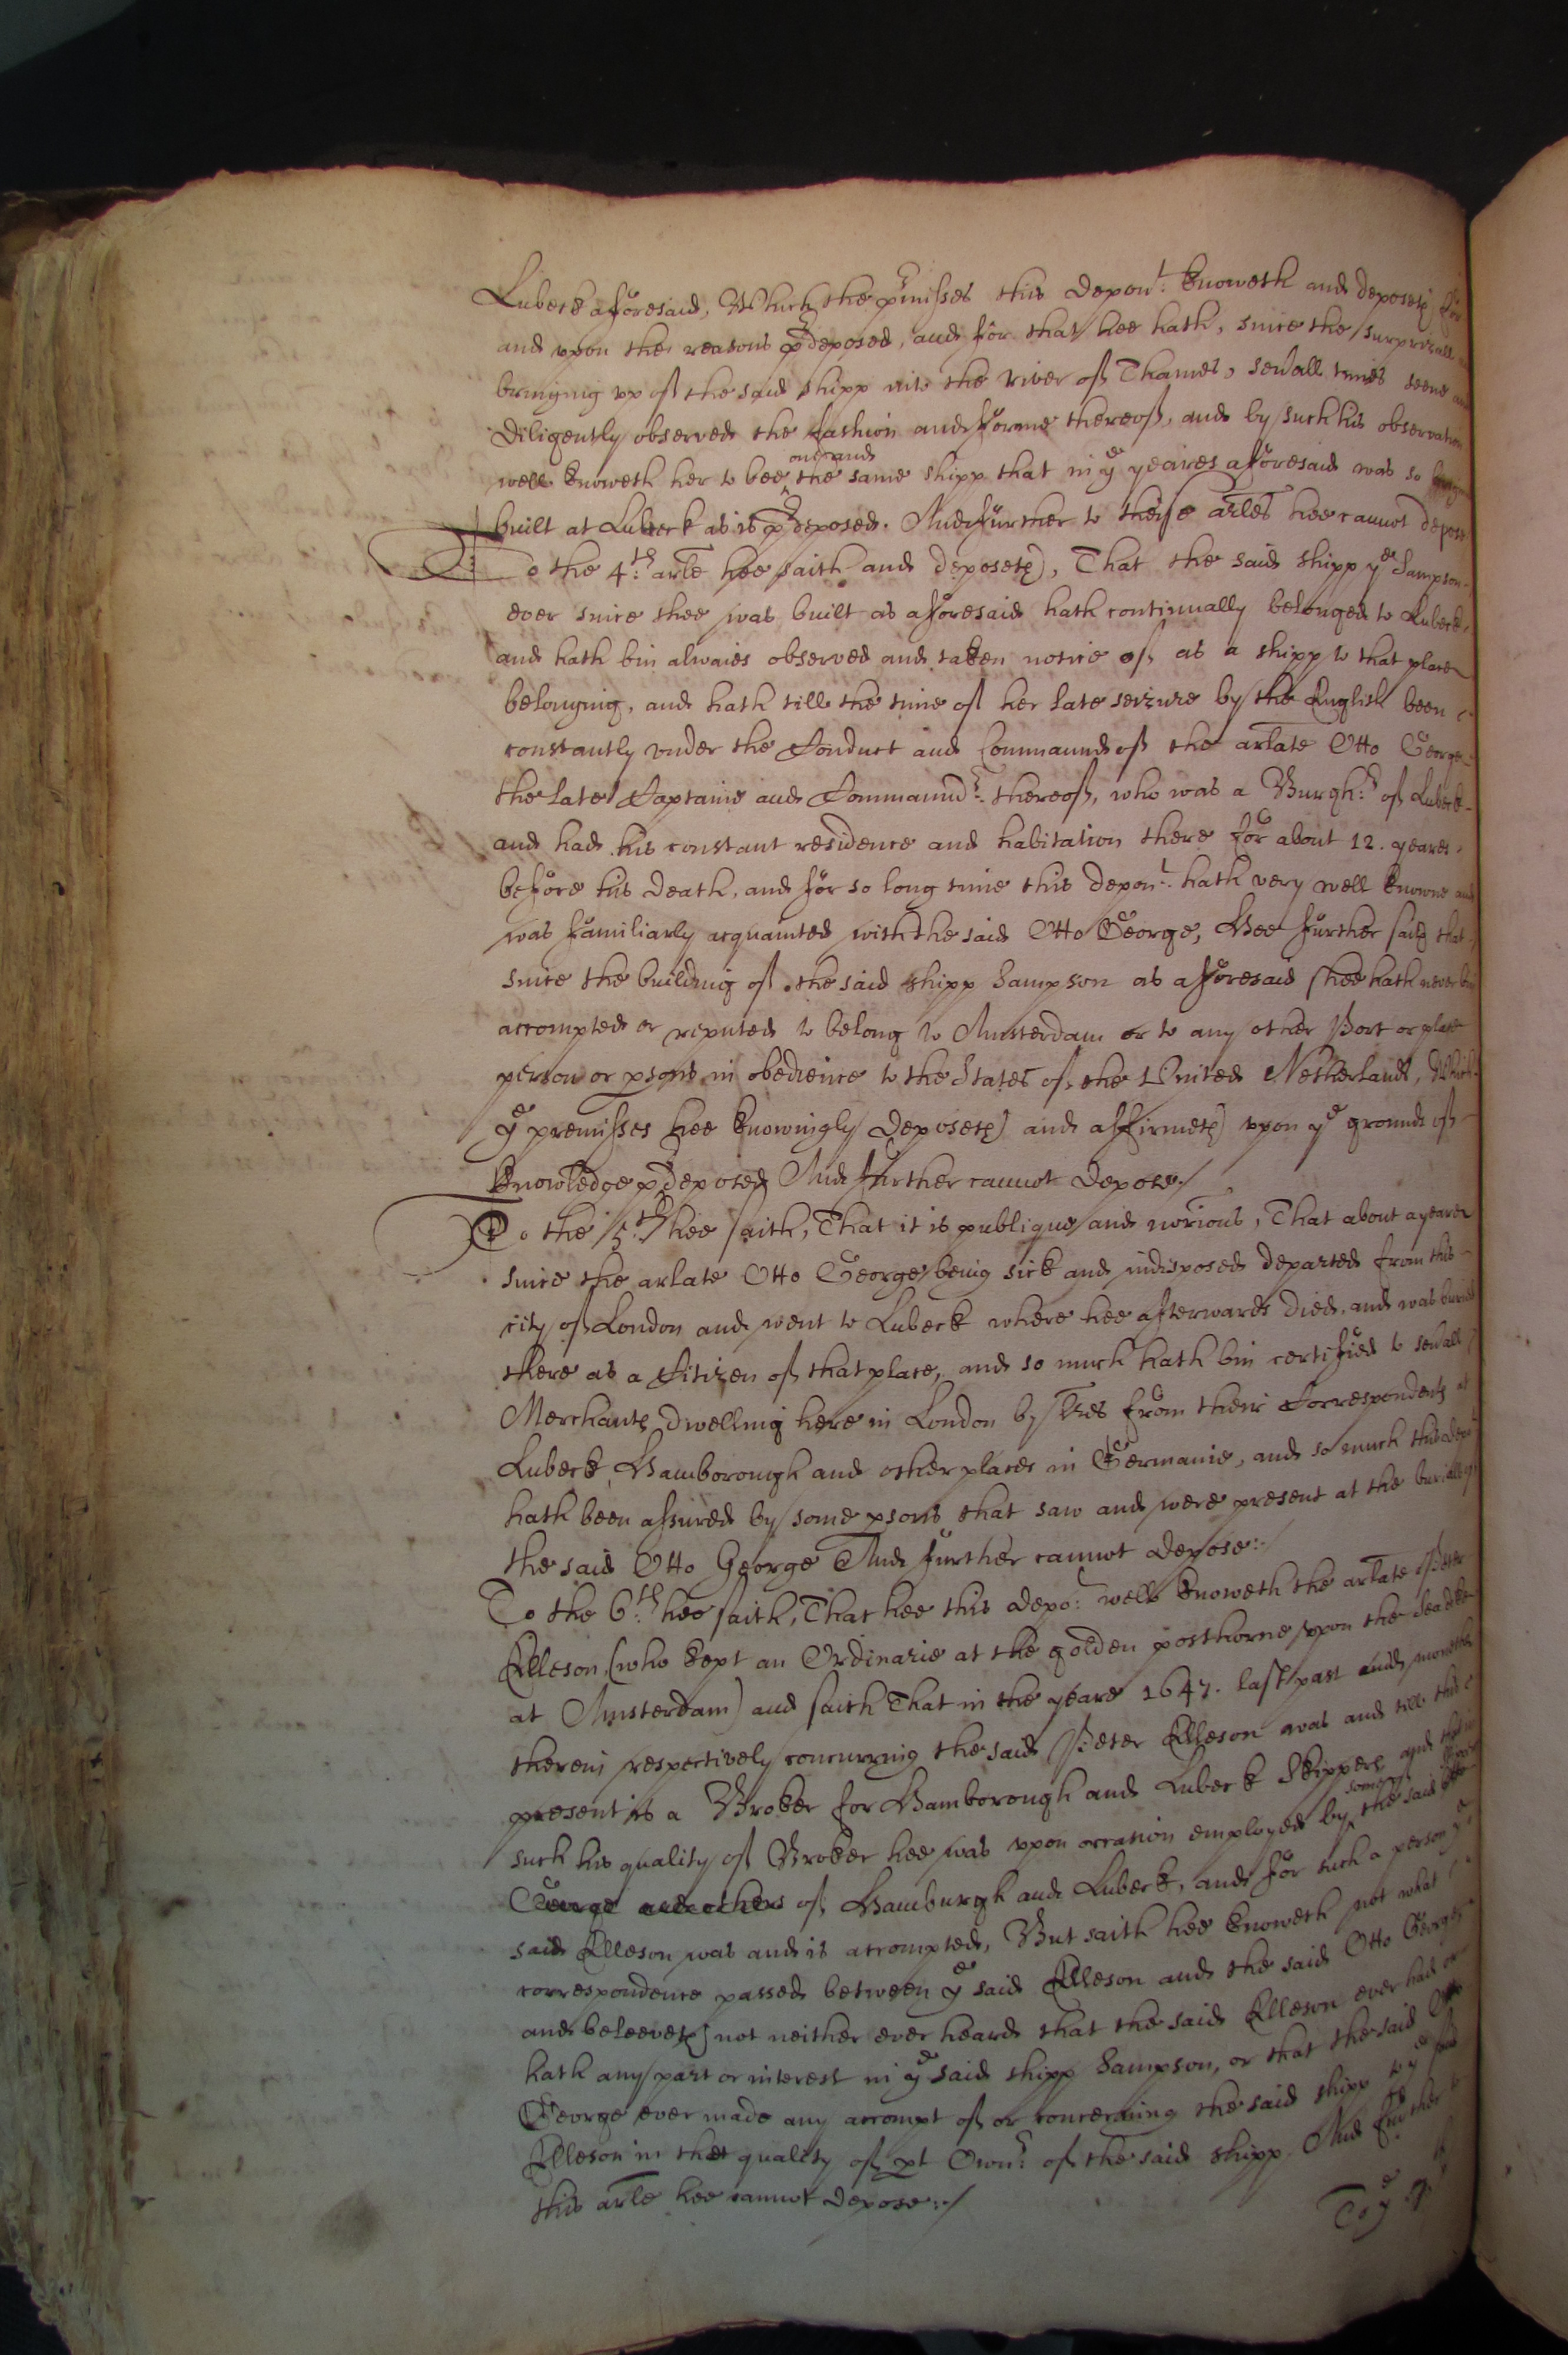 Lubeck aforesaid, Which the p'misses this depon:t knoweth and deposeth for
and vpon the reasons p'deposed, and for that hee hath, since the surprizall
bringing vp of the said shipp into the river of Thames, sev'all times seene and
diligently observed the fashion and forme thereof, and by such his observation
well knoweth her to bee one and the same shipp that in ye yeares aforesaid was so
built at Lubeck as is p'deposed. And further to theise arles hee cannot depose
To the 4:th arle hee saith and deposeth, That the said shipp ye Sampson
ever since shee was built as aforesaid hath continually belonged to Lubeck,
and hath bin alwaies observed and taken notice of as a shipp to that place
belonging, and hath till the time of her late seizure by the English been
constantly vnder the Conduct and Commaund of the arlate Otto George
the late Captaine and Commaund:r thereof, who was a Burgh:r of Lubeck
and had his constant residence and habitation there for about 12. yeares
before his death, and for so long time this depon:t hath very well knowne and
was familiarly acquainted with the said Otto George, Hee further saith that
since the building of the said shipp Sampson as aforesaid shee hath never bin
accompted or reputed to belong to Amsterdam or to any other Port or place
person or psons in obedience to the States of the Vnited Netherlands, Which
ye premisses hee knowingly deposeth and affirmeth vpon ye grounds of
knowledge p'deposed And further cannot depose./
To the 5:th hee saith, That it is publique and norious, That about a yeare
since the arlate Otto George being sick and indisposed departed from this
city of London and went to Lubeck where hee afterwards died, and was buried
there as a Citizen of that place, and so much hath bin certified to sev'all
Merchants dwelling here in London by lres from their Correspondents at
Lubeck, Hamborough and other places in Germanie, and so much this depot
hath been assured by some psons that saw and were present at the buriall of
the said Otto George And further cannot depose:-
To the 6:th hee saith, That hee this depo:t well knoweth the arlate Peter
Elleson, (who kept an Ordinarie at the golden posthorne vpon the
at Amsterdam) and saith That in the yeare 1647. last past and moneths
therein respectively concurring the said Peter Elleson was and till this
present is a Broker for Hamborough and Lubeck Skippers and that in
such his quality of Broker hee was vpon occasion employed by some of the said Otto
George and others of Hamburgh and Lubeck, and for such a person ye
said Elleson was and is accompted, But saith hee knoweth not what
correspondence passed between ye said Elleson and the said Otto George
and beleeveth not neither ever heard that the said Elleson ever had or
hath any part or interest in ye said shipp Sampson, or that the said Otto
George ever made any accompt of or concerning the said shipp to ye said
Elleson in that quality of pt Own:r of the said shipp And further to
this arle hee cannot depose:/
To ye 7.